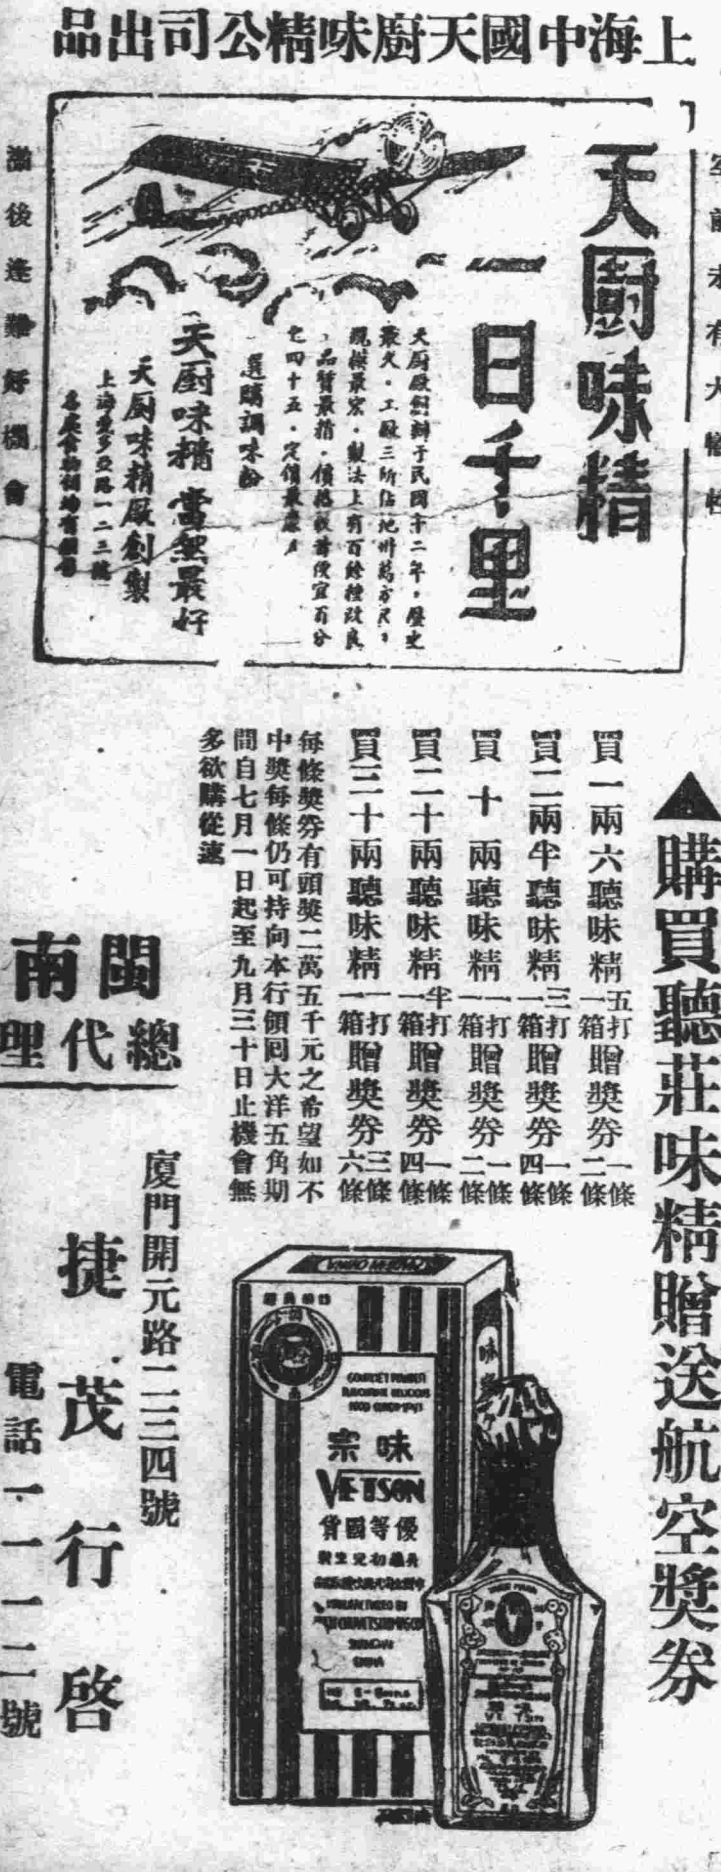 上海中國天厨味精公司出品
空前未有大犧牲
天厨味精
一日千里
天厨廠創辦于民國十二年，歷史
最久。工廠三所佔地卅萬方尺，
規模最宏。製法上有百餘種改良
，品質最精。價格較前便宜百分
之四十五。定價最廉。
選購調味粉
天厨味精當無最好
天厨味精廠創製
上海愛多亞路一二三號
後逢難好機會
▲購買聽莊味精贈送航空獎券
買一兩六聽味精五打一箱贈獎券一條二條
買二兩半聽味精三打一箱贈獎券一條四條
買十兩聽味精一打一箱贈獎券一條二條
買二十兩聽味精半打一箱贈獎券一條四條
買三十兩聽味精一打一箱贈獎券三條六條
每條獎券有頭獎二萬五千元之希望如不
中獎每條仍可持向本行領囘大洋五角期
間自七月一日起至九月三十日止機會無
多欲購從速
閩南
總代理
廈門開元路二二三四號
捷茂行啓
電話一一一二號
GOURMET POWDER
味宗
VETSON
優等國貨
SHANGHAI
CHINA